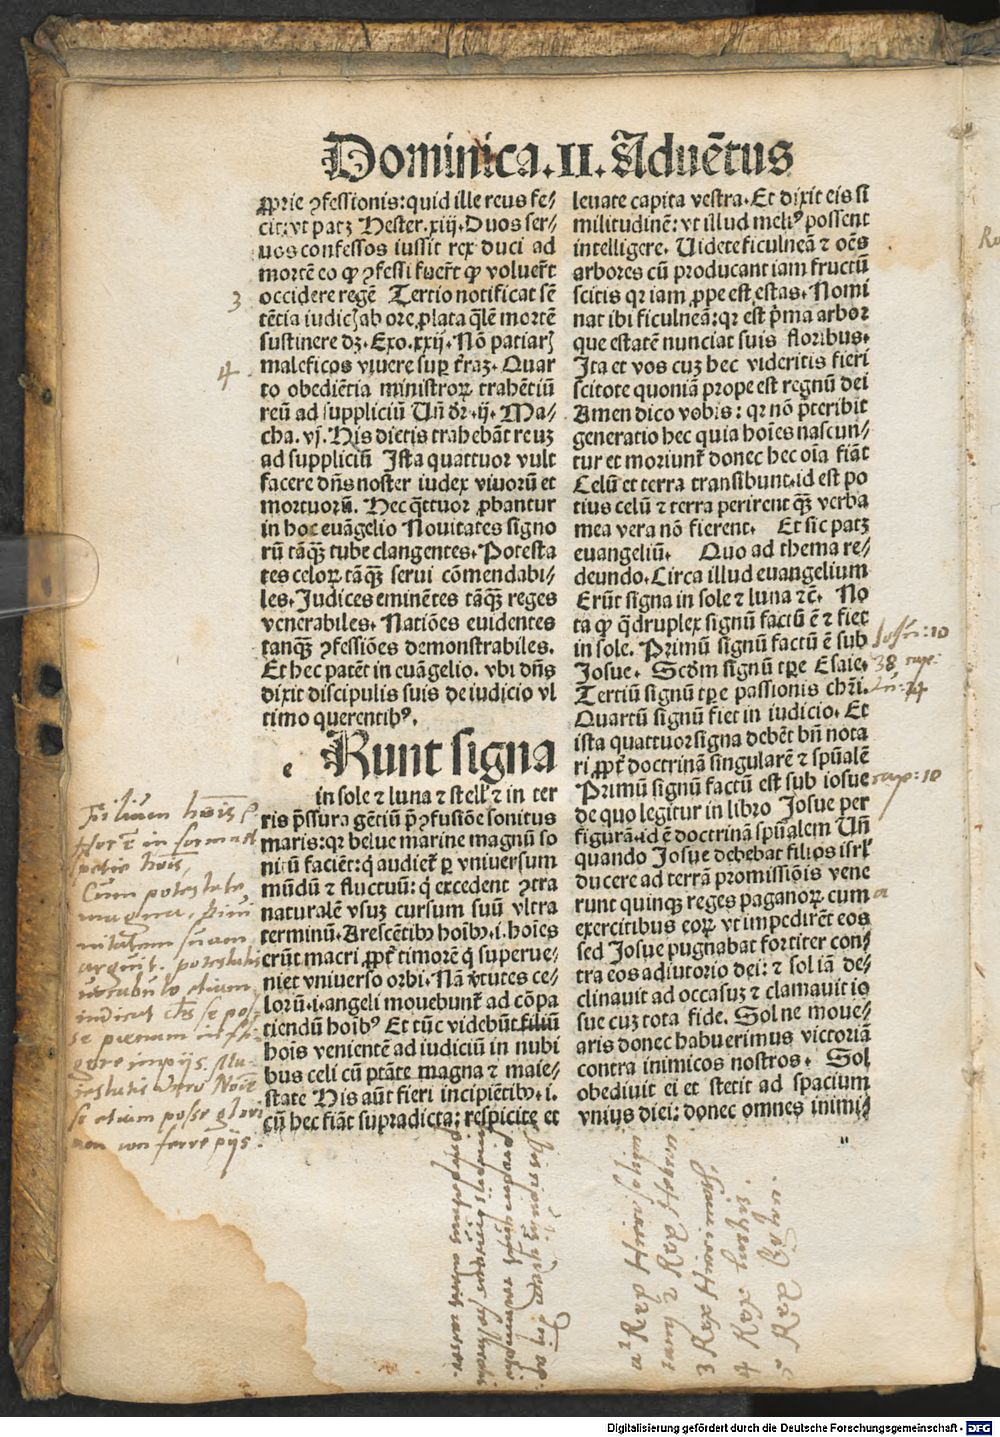 Dominica. II. Aduētus
ꝓprie ꝯfessionis: quid ille reus fe⸗
cit: vt patꝫ Hester. xiij. Duos ser⸗
uos confessos iussit rex duci ad
mortē eo ꝙ ꝯfessi fuer̄t ꝙ voluer̄t
3
occidere regē Tertio notificat sē
tētia iudicꝭ ab ore ꝓlata q̄lē mortē
sustinere dꝫ. Exo. xxij. Nō patiarꝭ
4
maleficos viuere suꝑ t̄raꝫ. Quar
to obediētia ministroꝝ trahētiū
reū ad suppliciū Un̄ dr̄. ij. Ma⸗
cha. vj. His dictis trahebāt reuꝫ
ad suppliciū Ista quattuor vult
facere dn̄s noster iudex viuorū et
mortuorū. Hec q̄ttuor ꝓbantur
in hoc euāgelio Nouitates signo
rū tāqꝫ tube clangentes. Potesta
tes celoꝝ tāqꝫ serui cōmendabi⸗
les. Iudices eminētes tāqꝫ reges
venerabiles. Natiōes euidentes
tanqꝫ ꝯfessiōes demonstrabiles.
Et hec patēt in euāgelio. vbi dn̄s
dixit discipulis suis de iudicio vl
timo querentibꝰ.
e Runt signa
in sole ⁊ luna ⁊ stell' ⁊ in ter
ris p̄ssura gētiū p̄ ꝯfusiōe sonitus
maris: qr belue marine magnū so
nitū faciēt: q̇ audiet̄ ꝑ vniuersum
mūdū ⁊ fluctuū: q̇ excedent ꝯtra
naturalē vsuꝫ cursum suū vltra
terminū. Arescētibꝰ hoībꝰ. i. hoīes
erūt macri ꝓpt̄ timorē q̇ superue⸗
niet vniuerso orbi. Nā v̓tutes ce⸗
lorū. i. angeli mouebunt̄ ad cōpa
tiendū hoībꝰ Et tūc videbūt filiū
hoīs venientē ad iudiciū in nubi
bus celi cū ptāte magna ⁊ maie⸗
state His aūt fieri incipiētibꝰ. i.
cū hec fiāt supradicta: respicite et
leuate capita vestra. Et dixit eis si
militudinē: vt illud meliꝰ possent
intelligere. Uidete ficulneā ⁊ oēs
arbores cū producant iam fructū
scitis qr iam ꝓpe est estas. Nomi
nat ibi ficulneā: qr est p̄ma arbor
que estatē nunciat suis floribus.
Ita et vos cuꝫ hec videritis fieri
scitote quoniā prope est regnū dei
Amen dico vobis: qr nō p̄teribit
generatio hec quia hoīes nascun⸗
tur et moriunt̄ donec hec oīa fiāt
Celū et terra transibunt. id est po
tius celū ⁊ terra perirent qꝫ verba
mea vera nō fierent. Et sic patꝫ
euangeliū. Quo ad thema re⸗
deundo. Circa illud euangelium
Erūt signa in sole ⁊ luna ⁊ c̄. No
ta ꝙ q̇druplex signū factū ē ⁊ fiet
in sole. Primū signū factū ē sub
Iosue. Scdm signū tꝑe Esaie.
Tertiū signū tꝑe passionis chri̅.
Quartū signū fiet in iudicio. Et
ista quattuor signa debēt bn̄ nota
ri ꝓpt̄ doctrinā singularē ⁊ spūalē
Primū signū factū est sub iosue
de quo legitur in libro Iosue per
figurā. id ē doctrinā spūalem Un̄
quando Iosue debebat filios isrl̄
ducere ad terrā promissiōis vene
runt quinqꝫ reges paganoꝝ cum
exercitibus eoꝝ vt impedirēt eos
sed Iosue pugnabat fortiter con⸗
tra eos adiutorio dei: ⁊ sol iā de⸗
clinauit ad occasuꝫ ⁊ clamauit io
sue cuꝫ tota fide. Sol ne moue⸗
aris donec habuerimus victoriā
contra inimicos nostros. Sol
obediuit ei et stetit ad spacium
vnius diei: donec omnes inimi⸗
Josu: 10
38 cap:
cap: 10
a
Filium hoīs
in forma
hoīs,
Cum potestate
magna,
suam
arguit. potestatis
vocabulo etiam
indicat se pos⸗
se pœnam infli⸗
gere impijs. Ma⸗
iestatis vero
se etiam posse
ferre pijs.
2 Rex
3 Rex
4 Rex
5 Rex
Digitalisierung gefördert durch die Deutsche Forschungsgemeinschaft - DFG